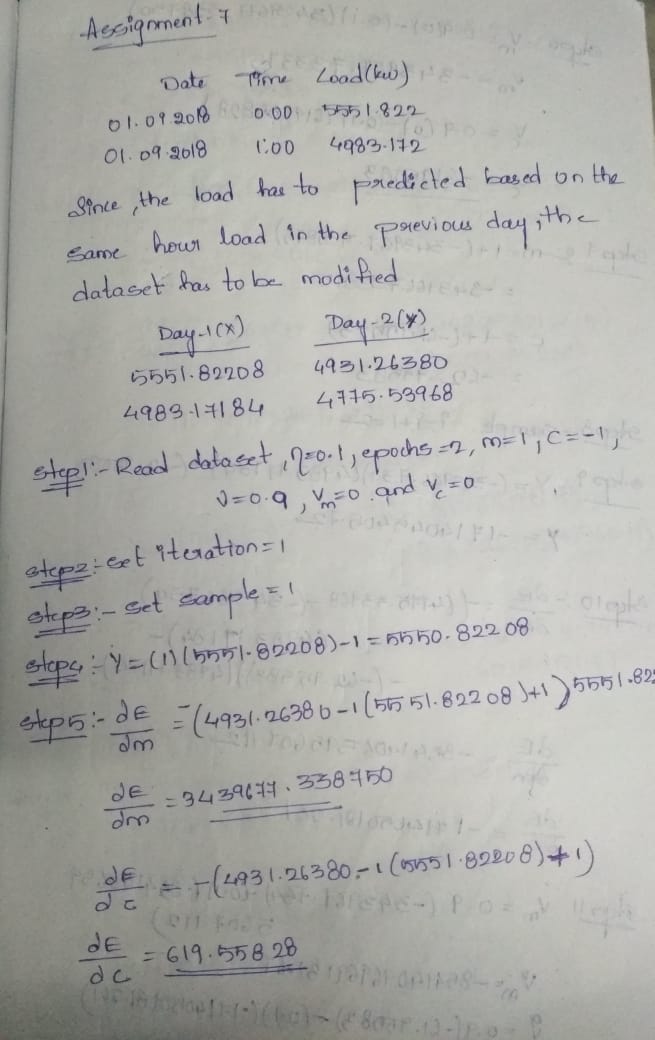 Assignment-7
Date Time Load(kw)
01.09.2018 0:00 5551.822
01.09.2018 1:00 4983.172
Since, the load has to predicted based on the
same hour load in the previous day, the
dataset has to be modified
Day-1(x) Day-2(y)
5551.82208 4931.26380
4983.17184 4775.53968
Step1:- Read dataset, η=0.1, epochs=2, m=1, C=-1,
ν=0.9, Vm=0 and Vc=0
Step2:- Set iteration=1
Step3:- Set sample=1
Step4:- Y=(1)(5551.82208)-1=5550.82208
Step5:- dE/dm = -(4931.26380-1(5551.82208)+1)5551.822
dE/dm = 3439677.338750
dE/dc = -(4931.26380-1(5551.82208)+1)
dE/dc = 619.55828